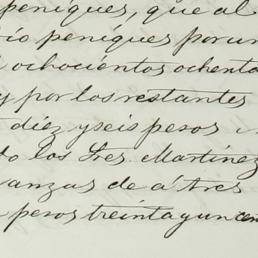 peniques, que al
peniques por un
ochocientos ochenta
y por los restantes
diez y seis pesos
los Sres Martinez
anzas de á tres
pesos treinta y un cen